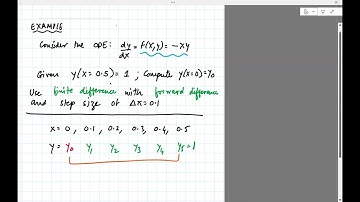 EXAMPLE
Consider the ODE: dy/dx = f(x,y) = -xy
Given y(x=0.5)=1; Compute y(x=0)=y₀
Use finite difference with forward difference
and step size of Δx=0.1
x = 0, 0.1, 0.2, 0.3, 0.4, 0.5
y = y₀ y₁ y₂ y₃ y₄ y₅=1